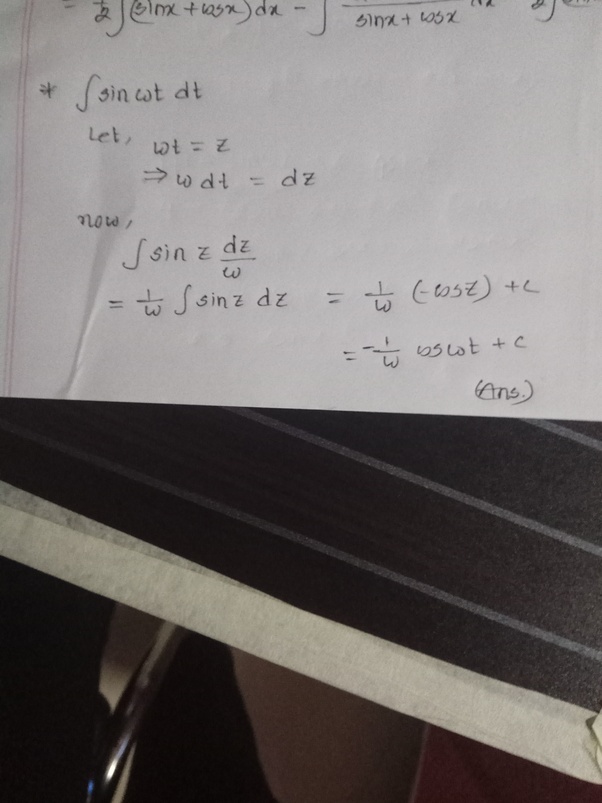 = 1/2 ∫(sinx + cosx) dx - ∫ / sinx + cosx
* ∫ sin ωt dt
Let, ωt = z
⇒ ω dt = dz
now,
∫ sin z dz/ω
= 1/ω ∫ sin z dz = 1/ω (-cosz) + c
= -1/ω cos ωt + c
(Ans.)